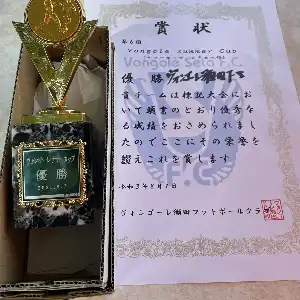 賞状
第6回
Vongole Summer Cup
Vongole Seta F.C.
優勝 ヴォンゴーレ瀬田FS
貴チームは標記大会にお
いて頭書のとおり優秀な
る成績をおさめられまし
たのでここにその栄誉を
讃えこれを賞します
令和3年8月7日
ヴォンゴーレ瀬田フットボールクラブ
F.C.
優勝